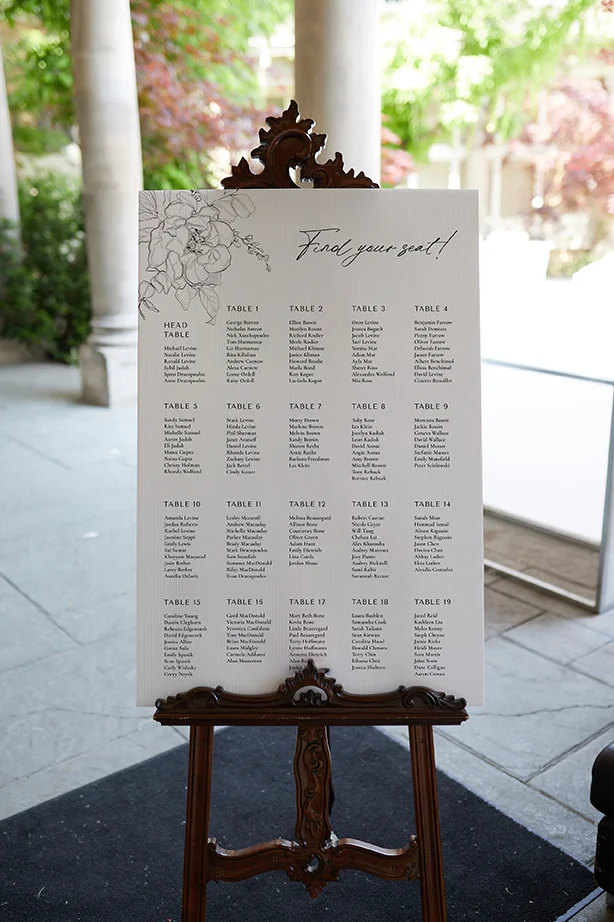 Find your seat!
HEAD
TABLE
Michael Levine
Natalie Levine
Ronald Levine
Sybil Judah
Spiro Dracopoulos
Anne Dracopoulos
TABLE 1
George Barron
Nicholas Barron
Nick Xanthopoulos
Tom Harmantas
Liz Harmantas
Rita Kilislian
Andrew Carnew
Alexa Carnew
Lorne Ordell
Raisy Ordell
TABLE 2
Elliot Bassin
Marilyn Bassin
Richard Rodier
Merle Rodier
Michael Kliman
Janice Kliman
Howard Brodie
Marla Bond
Ron Kogan
Lucinda Kogan
TABLE 3
Oren Levine
Jessica Bogach
Jacob Levine
Yael Levine
Yonina Mar
Adam Mar
Ayla Mar
Sheree Ross
Alexandra Wolfond
Mia Ross
TABLE 4
Benjamin Farrow
Sarah Demisse
Penny Farrow
Oliver Farrow
Deborah Farrow
James Farrow
Albert Benchimol
Elissa Benchimol
David Levine
Ginette Brouillet
TABLE 5
Sandy Samuel
Rita Samuel
Michelle Samuel
Aaron Judah
Eli Judah
Manoj Gupta
Naina Gupta
Christy Holman
Rhonda Wolfond
TABLE 6
Mark Levine
Hinda Levine
Phil Sherman
Janet Aranoff
Daniel Levine
Rhonda Levine
Zachary Levine
Jack Bettel
Cindy Kaiser
TABLE 7
Morty Brown
Marlene Brown
Melvin Brown
Sandy Brown
Sharon Recht
Arnie Recht
Barbara Freedman
Les Klein
TABLE 8
Toby Rose
Les Klein
Jocelyn Kadish
Leon Kadish
David Aroua
Angie Aroua
Amy Brown
Mitchell Brown
Tony Rebuck
Bernice Rebuck
TABLE 9
Montana Bassin
Jackie Bassin
Geneva Wallace
David Wallace
Daniel Musser
Stefanie Musser
Emily Mansfield
Peter Scislowski
TABLE 10
Amanda Levine
Jordan Roberts
Rachel Levine
Jasmine Seppi
Emily Lewis
Sai Sumar
Khayyam Maqsood
Josie Rether
Larry Berber
Aurelia Oelaric
TABLE 11
Lesley Marshall
Andrew Macaulay
Michelle Macaulay
Parker Macaulay
Brady Macaulay
Mark Dracopoulos
Sam Standish
Summer MacDonald
Riley MacDonald
Evan Dracopoulos
TABLE 12
Melissa Beauregard
Allison Bone
Courteney Bone
Oliver Green
Adam Hunt
Emily Dietrich
Lina Corda
Jordan Shoan
TABLE 13
Robert Curran
Nicole Geyer
Will Tang
Chelsea Lai
Alex Khorouba
Audrey Marcoux
Joey Pansie
Audrey Bicknell
Sami Kabir
Savannah Reener
TABLE 14
Sarah Mian
Hammad Ismail
Alison Rigassio
Stephen Rigassio
Jason Chen
Davina Chen
Abbas Luther
Ekta Luther
Alexdia Gonzalez
TABLE 15
Caroline Young
Dustin Cleghorn
Rebecca Edgeworth
David Edgeworth
Jessica Allan
Goran Sala
Emily Spanik
Sean Spanik
Carly Witkosky
Corey Noyek
TABLE 16
Gord MacDonald
Victoria MacDonald
Veronica Confidante
Tom MacDonald
Brian MacDonald
Laura Midgley
Carmela Addante
Alan Masterson
TABLE 17
Mary Beth Bone
Kevin Bone
Linda Beauregard
Paul Beauregard
Terry Hoffmann
Lynne Hoffmann
Annette Dietrich
Alan
TABLE 18
Laura Bashlen
Samantha Cook
Sarah Taliano
Sean Kirwan
Caroline Hazel
Donald Chmura
Terry Chin
Eileena Chin
Jessica Hashem
TABLE 19
Jared Reid
Kathleen Liu
Myles Kenny
Steph Cheyne
Jamie Ricks
Heidi Mayer
Scot Morris
John Yoon
Dane Colligan
Aaron Cowan